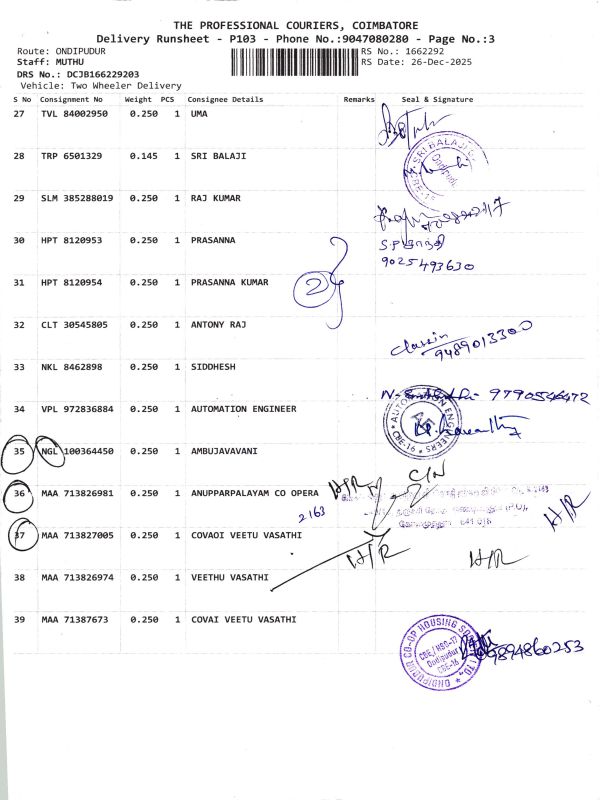 THE PROFESSIONAL COURIERS, COIMBATORE
Delivery Runsheet - P103 - Phone No.:9047080280 - Page No.:3
Route: ONDIPUDUR
RS No.: 1662292
Staff: MUTHU
RS Date: 26-Dec-2025
DRS No.: DCJB166229203
Vehicle: Two Wheeler Delivery
S No Consignment No Weight PCS Consignee Details Remarks Seal & Signature
27 TVL 84002950 0.250 1 UMA
28 TRP 6501329 0.145 1 SRI BALAJI
SRI BALAJI
29 SLM 385288019 0.250 1 RAJ KUMAR
30 HPT 8120953 0.250 1 PRASANNA
9025493630
31 HPT 8120954 0.250 1 PRASANNA KUMAR
2
32 CLT 30545805 0.250 1 ANTONY RAJ
9489013300
33 NKL 8462898 0.250 1 SIDDHESH
9790546472
34 VPL 972836884 0.250 1 AUTOMATION ENGINEER
AUTOMATION ENGINEERS
CBE-16
35 NGL 100364450 0.250 1 AMBUJAVAVANI
C/N
H/R
36 MAA 713826981 0.250 1 ANUPPARPALAYAM CO OPERA
2163
H/R
37 MAA 713827005 0.250 1 COVAOI VEETU VASATHI
H/R H/R
38 MAA 713826974 0.250 1 VEETHU VASATHI
39 MAA 71387673 0.250 1 COVAI VEETU VASATHI
ONDIPUDUR CO-OP HOUSING SOCIETY LTD.,
Ondipudur
CBE-16
9894860253